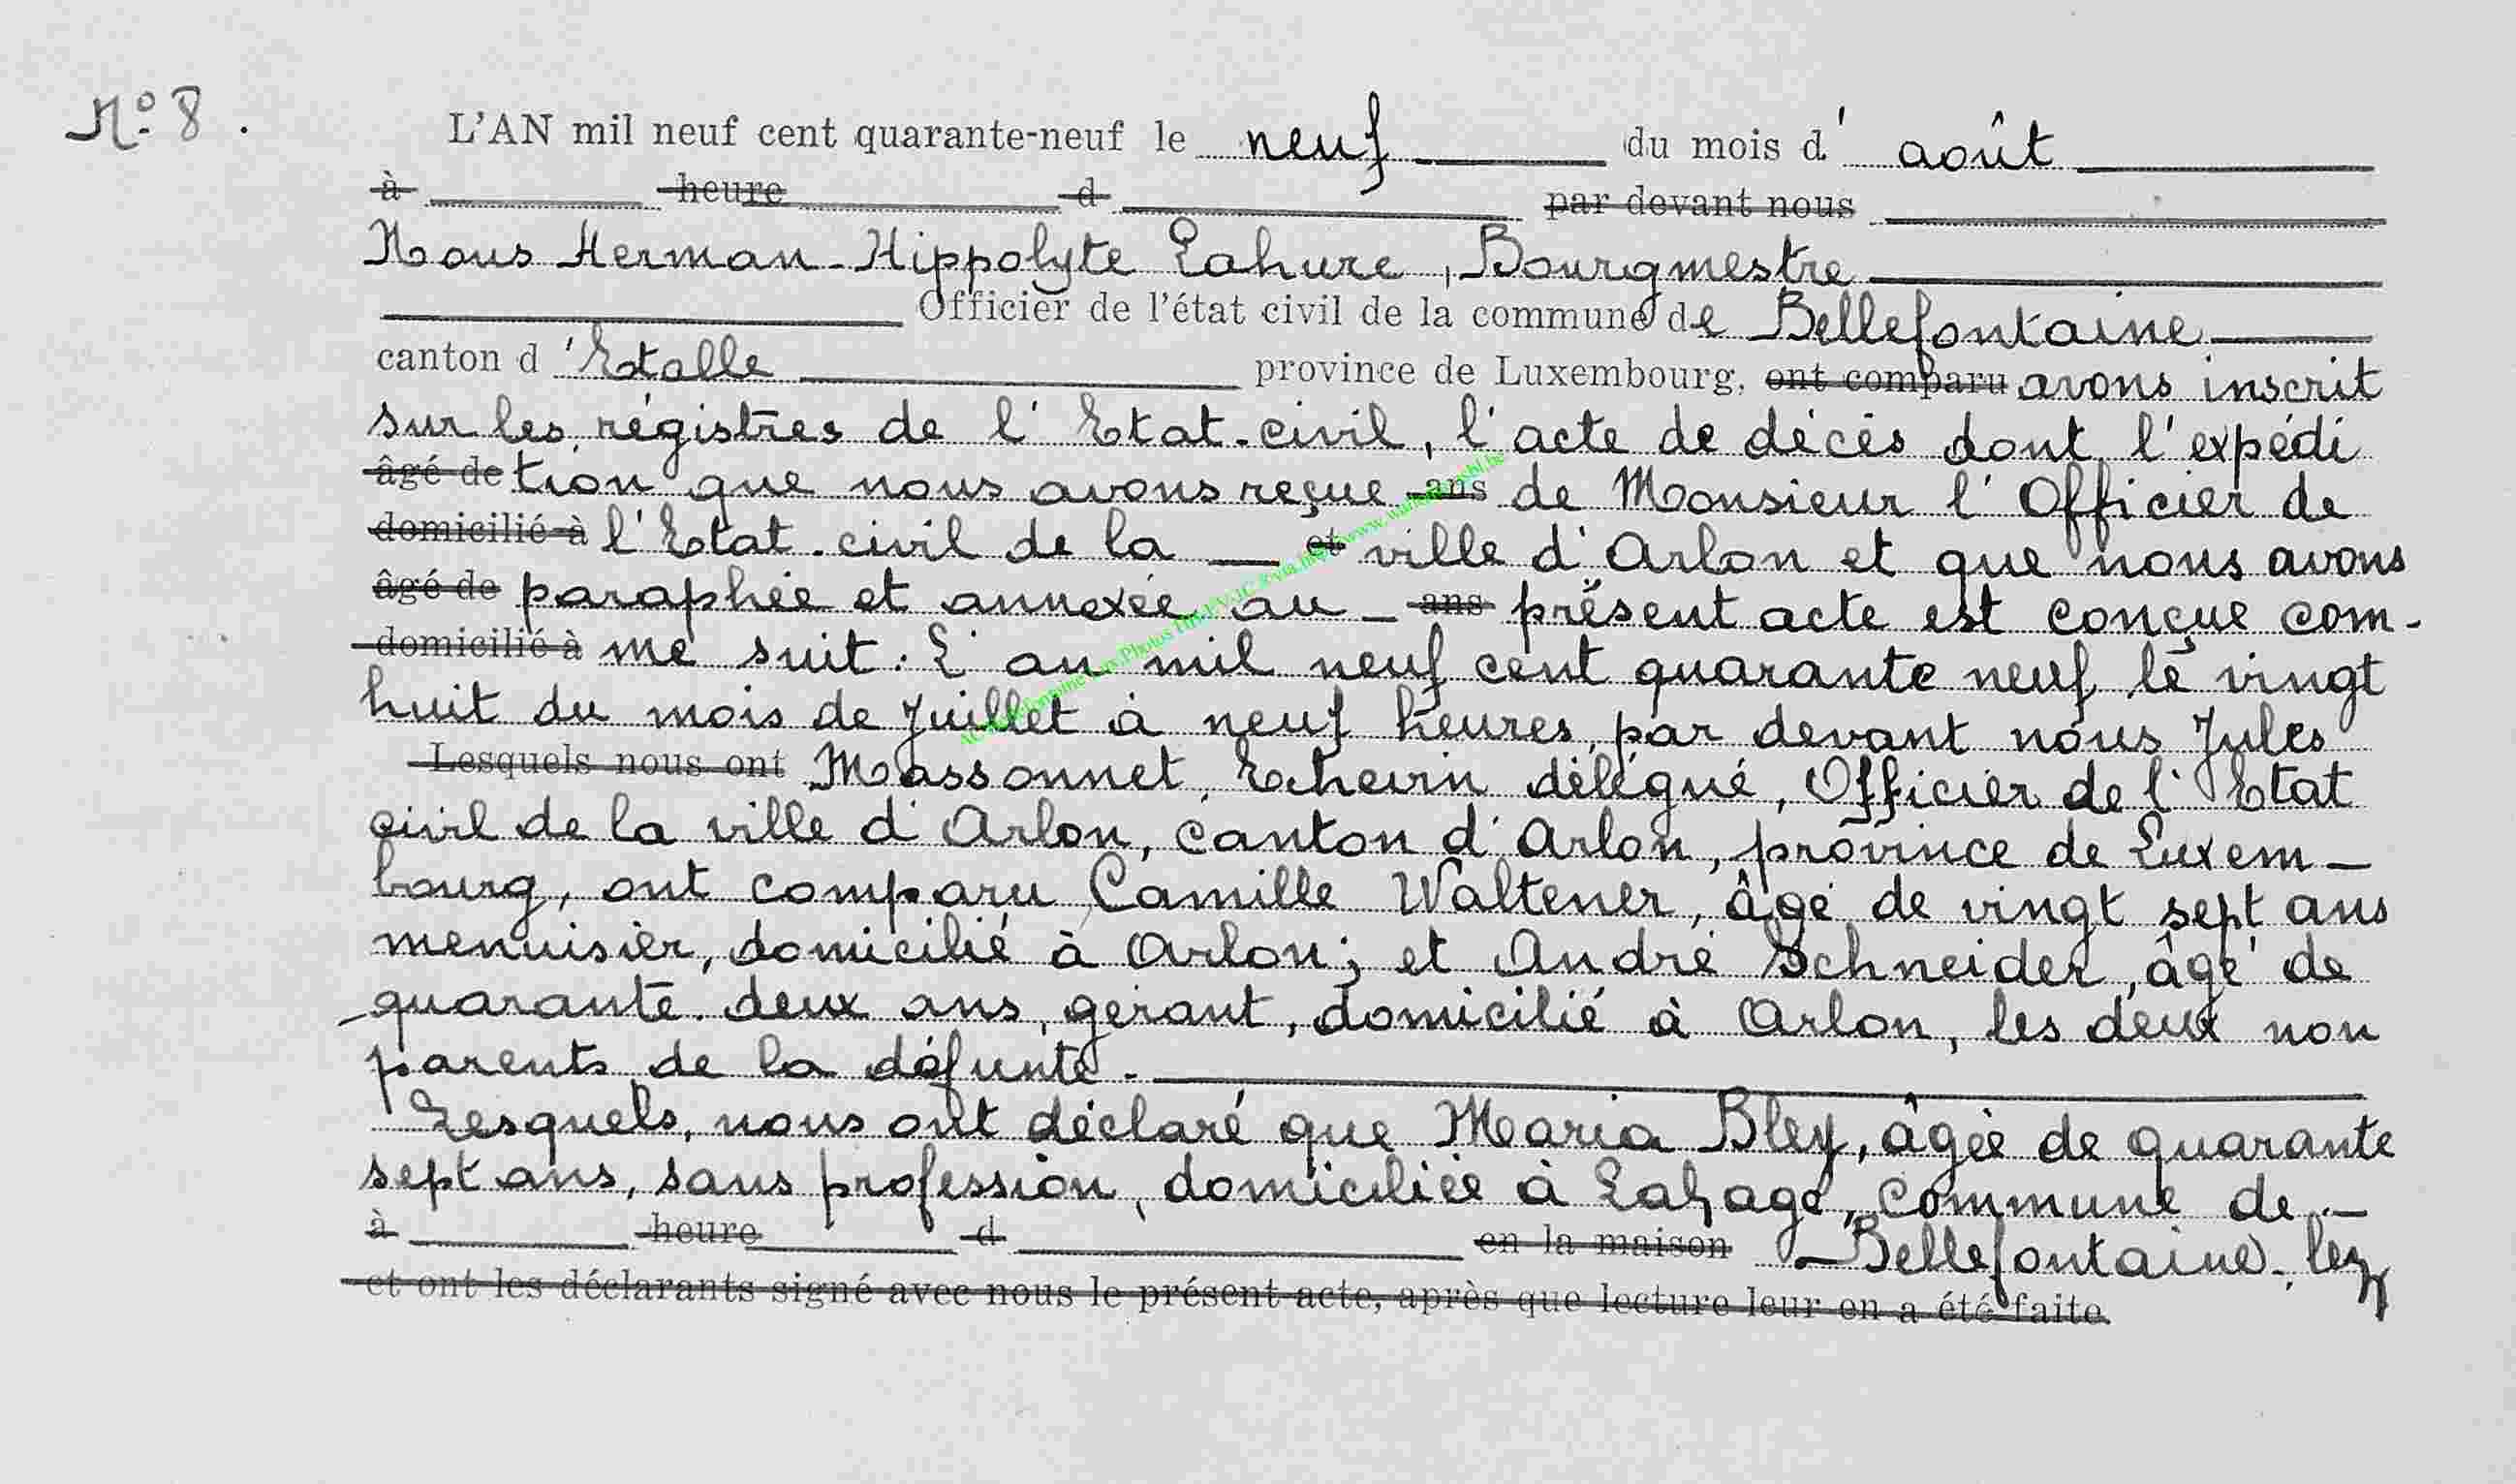 N° 8.
L'AN mil neuf cent quarante-neuf le neuf du mois d' août
à heure d par devant nous
Nous Herman-Hippolyte Lahure, Bourgmestre
Officier de l'état civil de la commune de Bellefontaine
canton d'Etalle province de Luxembourg, ont comparu avons inscrit
sur les régistres de l'Etat-civil, l'acte de décès dont l'expédi
âgé de tion que nous avons reçue ans de Monsieur l'Officier de
domicilié à l'Etat-civil de la et ville d'Arlon et que nous avons
âgé de paraphée et annexée au - ans présent acte est conçue com-
domicilié à me suit. L'an mil neuf cent quarante neuf le vingt
huit du mois de Juillet à neuf heures, par devant nous Jules
Lesquels nous ont Massonnet, Echevin délégué, Officier de l'Etat
civil de la ville d'Arlon, canton d'Arlon, province de Luxem-
bourg, ont comparu Camille Waltener, âgé de vingt sept ans
menuisier, domicilié à Arlon; et André Schneider, âgé de
quarante-deux ans, gérant, domicilié à Arlon, les deux non
parents de la défunte.
Lesquels, nous ont déclaré que Maria Bley, âgée de quarante
sept ans, sans profession, domiciliée à Lahage, commune de -
à heure d en la maison Bellefontaine-lez
et ont les déclarants signé avec nous le présent acte, après que lecture leur en a été faite.